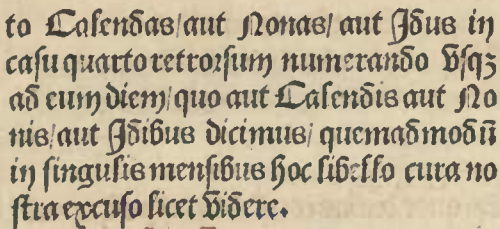 to Calendas/aut Nonas/ aut Jdus in
casu quarto retrorsum numerando vsqꝫ
ad eum diem/quo aut Calendis aut No
nis/aut Jdibus dicimus/ quemadmodū
in singulis mensibus hoc libello cura no
stra excuso licet videre.